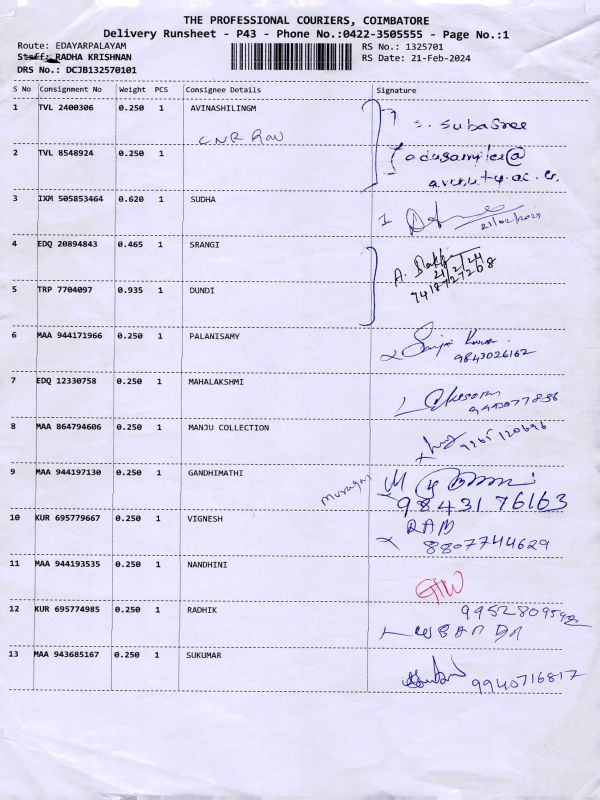 THE PROFESSIONAL COURIERS, COIMBATORE
Delivery Runsheet - P43 - Phone No.:0422-3505555 - Page No.:1
Route: EDAYARPALAYAM RS No.: 1325701
Staff: RADHA KRISHNAN RS Date: 21-Feb-2024
DRS No.: DCJB132570101
S No Consignment No Weight PCS Consignee Details Signature
1 TVL 2400306 0.250 1 AVINASHILINGM
S. Subasree
2 TVL 8548924 0.250 1
3 IXM 505853464 0.620 1 SUDHA
21/02/2024
4 EDQ 20894843 0.465 1 SRANGI
21/2/24
7418727268
5 TRP 7704097 0.935 1 DUNDI
6 MAA 944171966 0.250 1 PALANISAMY
9843026162
7 EDQ 12330758 0.250 1 MAHALAKSHMI
8 MAA 864794606 0.250 1 MANJU COLLECTION
9965120696
9 MAA 944197130 0.250 1 GANDHIMATHI
murugan
9843176163
10 KUR 695779667 0.250 1 VIGNESH
RAM
8807744629
11 MAA 944193535 0.250 1 NANDHINI
12 KUR 695774985 0.250 1 RADHIK
13 MAA 943685167 0.250 1 SUKUMAR
9940716817